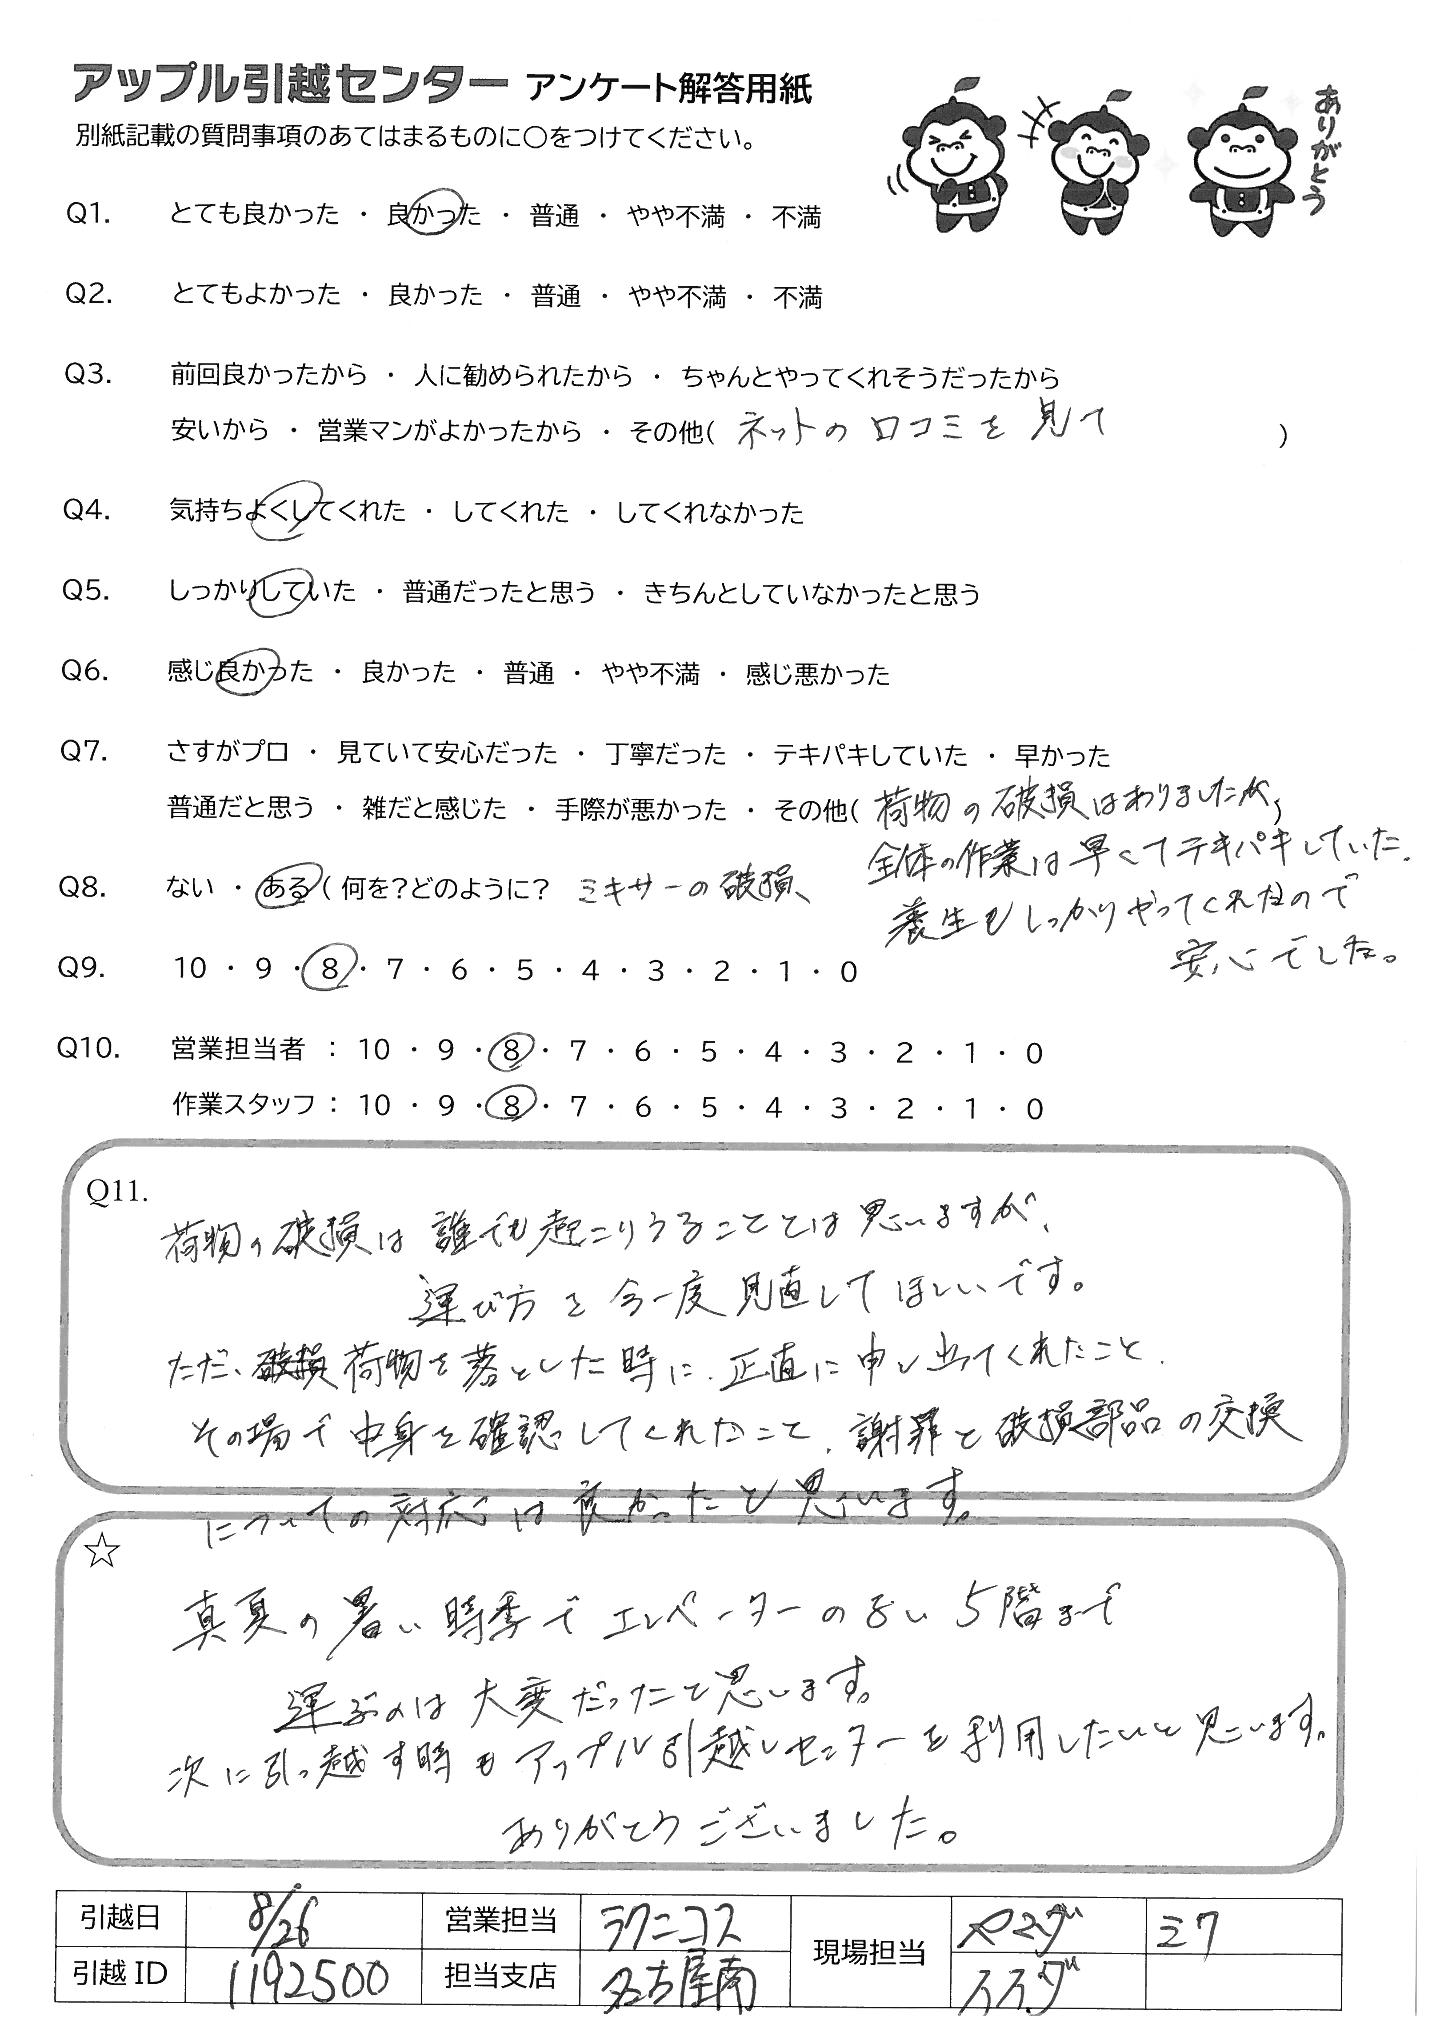 アップル引越センター アンケート解答用紙
別紙記載の質問事項のあてはまるものに〇をつけてください。
ありがとう
Q1. とても良かった ・ 良かった ・ 普通 ・ やや不満 ・ 不満
Q2. とてもよかった ・ 良かった ・ 普通 ・ やや不満 ・ 不満
Q3. 前回良かったから ・ 人に勧められたから ・ ちゃんとやってくれそうだったから
安いから ・ 営業マンがよかったから ・ その他( ネットの口コミを見て )
Q4. 気持ちよくしてくれた ・ してくれた ・ してくれなかった
Q5. しっかりしていた ・ 普通だったと思う ・ きちんとしていなかったと思う
Q6. 感じ良かった ・ 良かった ・ 普通 ・ やや不満 ・ 感じ悪かった
Q7. さすがプロ ・ 見ていて安心だった ・ 丁寧だった ・ テキパキしていた ・ 早かった
普通だと思う ・ 雑だと感じた ・ 手際が悪かった ・ その他( 荷物の破損はありましたが、)
全体の作業は早くてテキパキしていた。
Q8. ない ・ ある ( 何を?どのように? ミキサーの破損、
養生もしっかりやってくれたので
安心でした。
Q9. 10 ・ 9 ・ 8 ・ 7 ・ 6 ・ 5 ・ 4 ・ 3 ・ 2 ・ 1 ・ 0
Q10. 営業担当者 : 10 ・ 9 ・ 8 ・ 7 ・ 6 ・ 5 ・ 4 ・ 3 ・ 2 ・ 1 ・ 0
作業スタッフ : 10 ・ 9 ・ 8 ・ 7 ・ 6 ・ 5 ・ 4 ・ 3 ・ 2 ・ 1 ・ 0
Q11.
荷物の破損は誰でも起こりうることとは思いますが、
運び方を今一度見直してほしいです。
ただ、破損荷物を落とした時に、正直に申し出てくれたこと、
その場で中身を確認してくれたこと、謝罪と破損部品の交換
についての対応は良かったと思います。
☆
真夏の暑い時季でエレベーターのない5階まで
運ぶのは大変だったと思います。
次に引っ越す時もアップル引越しセンターを利用したいと思います。
ありがとうございました。
引越日 8/26 営業担当 ラクニコス 現場担当 ヤマダ ミワ
引越ID 1192500 担当支店 名古屋南 イイダ